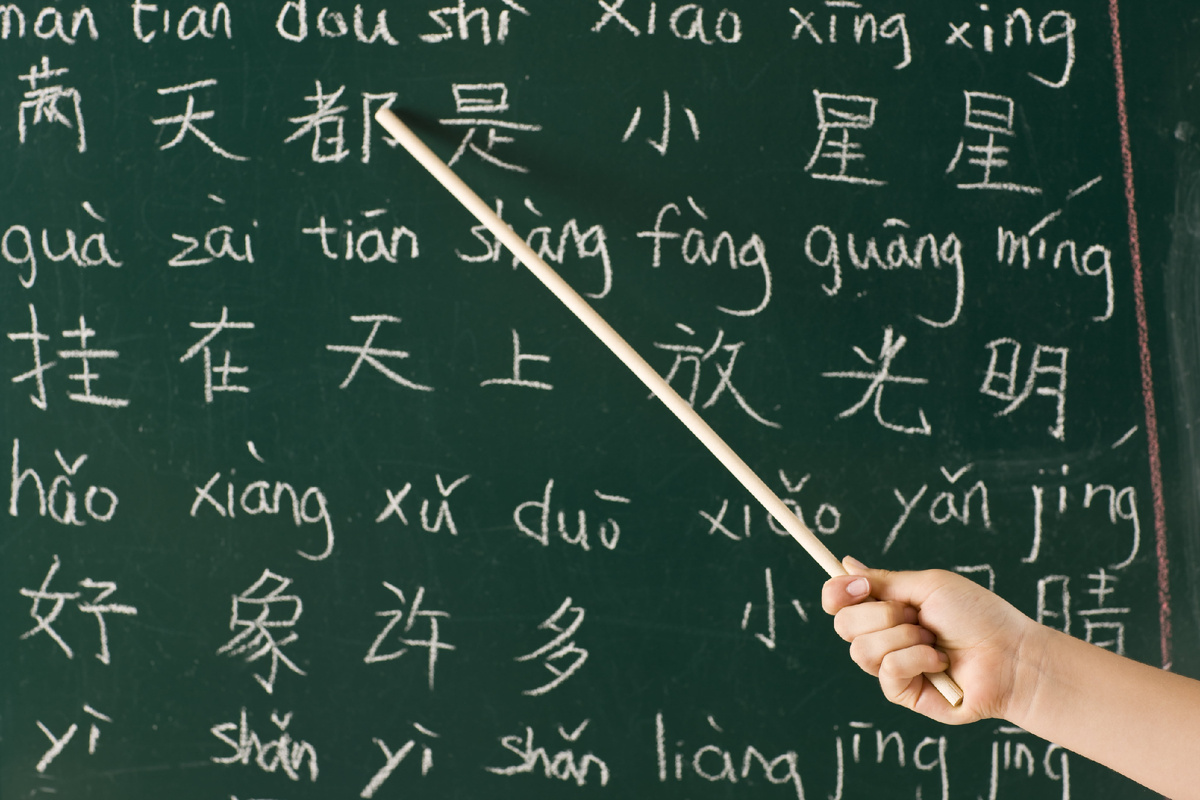 mǎn tiān dōu shì xiǎo xīng xing
满 天 都 是 小 星 星
guà zài tiān shàng fàng guāng míng
挂 在 天 上 放 光 明
hǎo xiàng xǔ duō xiǎo yǎn jing
好 象 许 多 小 睛
yì shǎn yì shǎn liàng jīng jīng